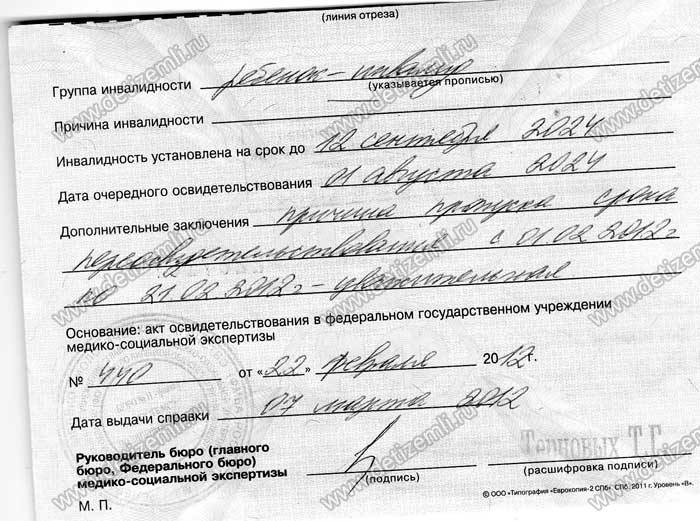 (линия отреза)
Группа инвалидности ребенок-инвалид
(указывается прописью)
Причина инвалидности
Инвалидность установлена на срок до 12 сентября 2024
Дата очередного освидетельствования 01 августа 2024
Дополнительные заключения причина пропуска срока
переосвидетельствования с 01.02.2012г
по 21.02.2012г - уважительная
Основание: акт освидетельствования в федеральном государственном учреждении
медико-социальной экспертизы
№ 440 от «22» февраля 2012г.
Дата выдачи справки 07 марта 2012
Руководитель бюро (главного
бюро, Федерального бюро)
медико-социальной экспертизы
(подпись)
Терновых Т.Г.
(расшифровка подписи)
М. П.
© ООО «Типография «Еврокопия-2 СПб». СПб. 2011 г. Уровень «В».
www.detizemli.ru